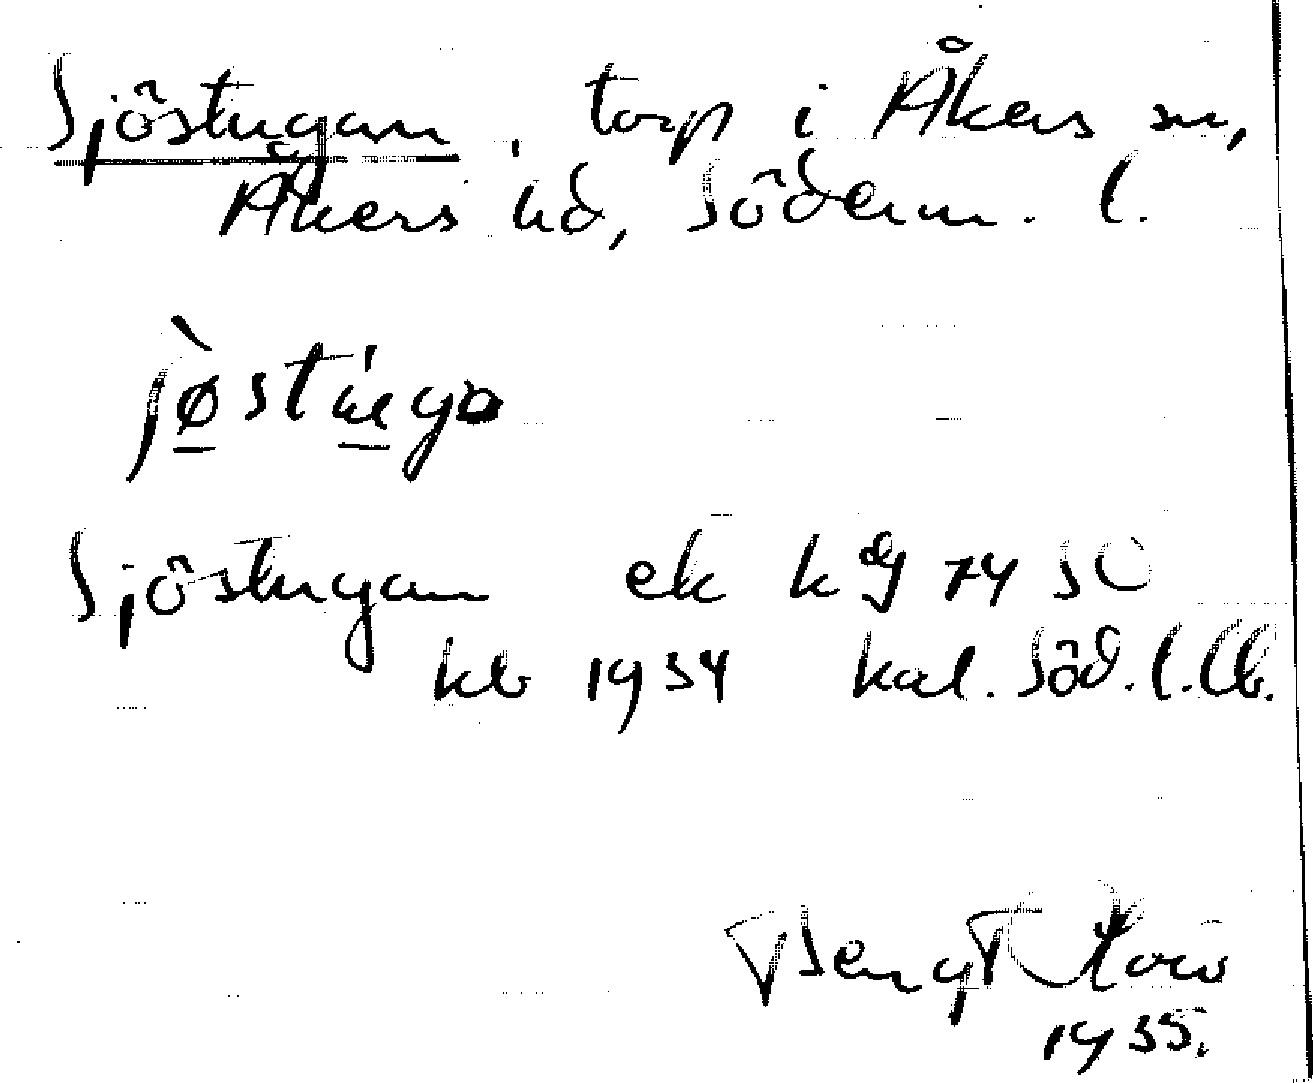 Sjöstugan, torp i Åkers sn,
Åkers hd, Söderm. l.
jø̀stúga
Sjöstugan ek kbg 74 SO
kb 1934 kal. Söd. l. lb.
Bengt
1935.